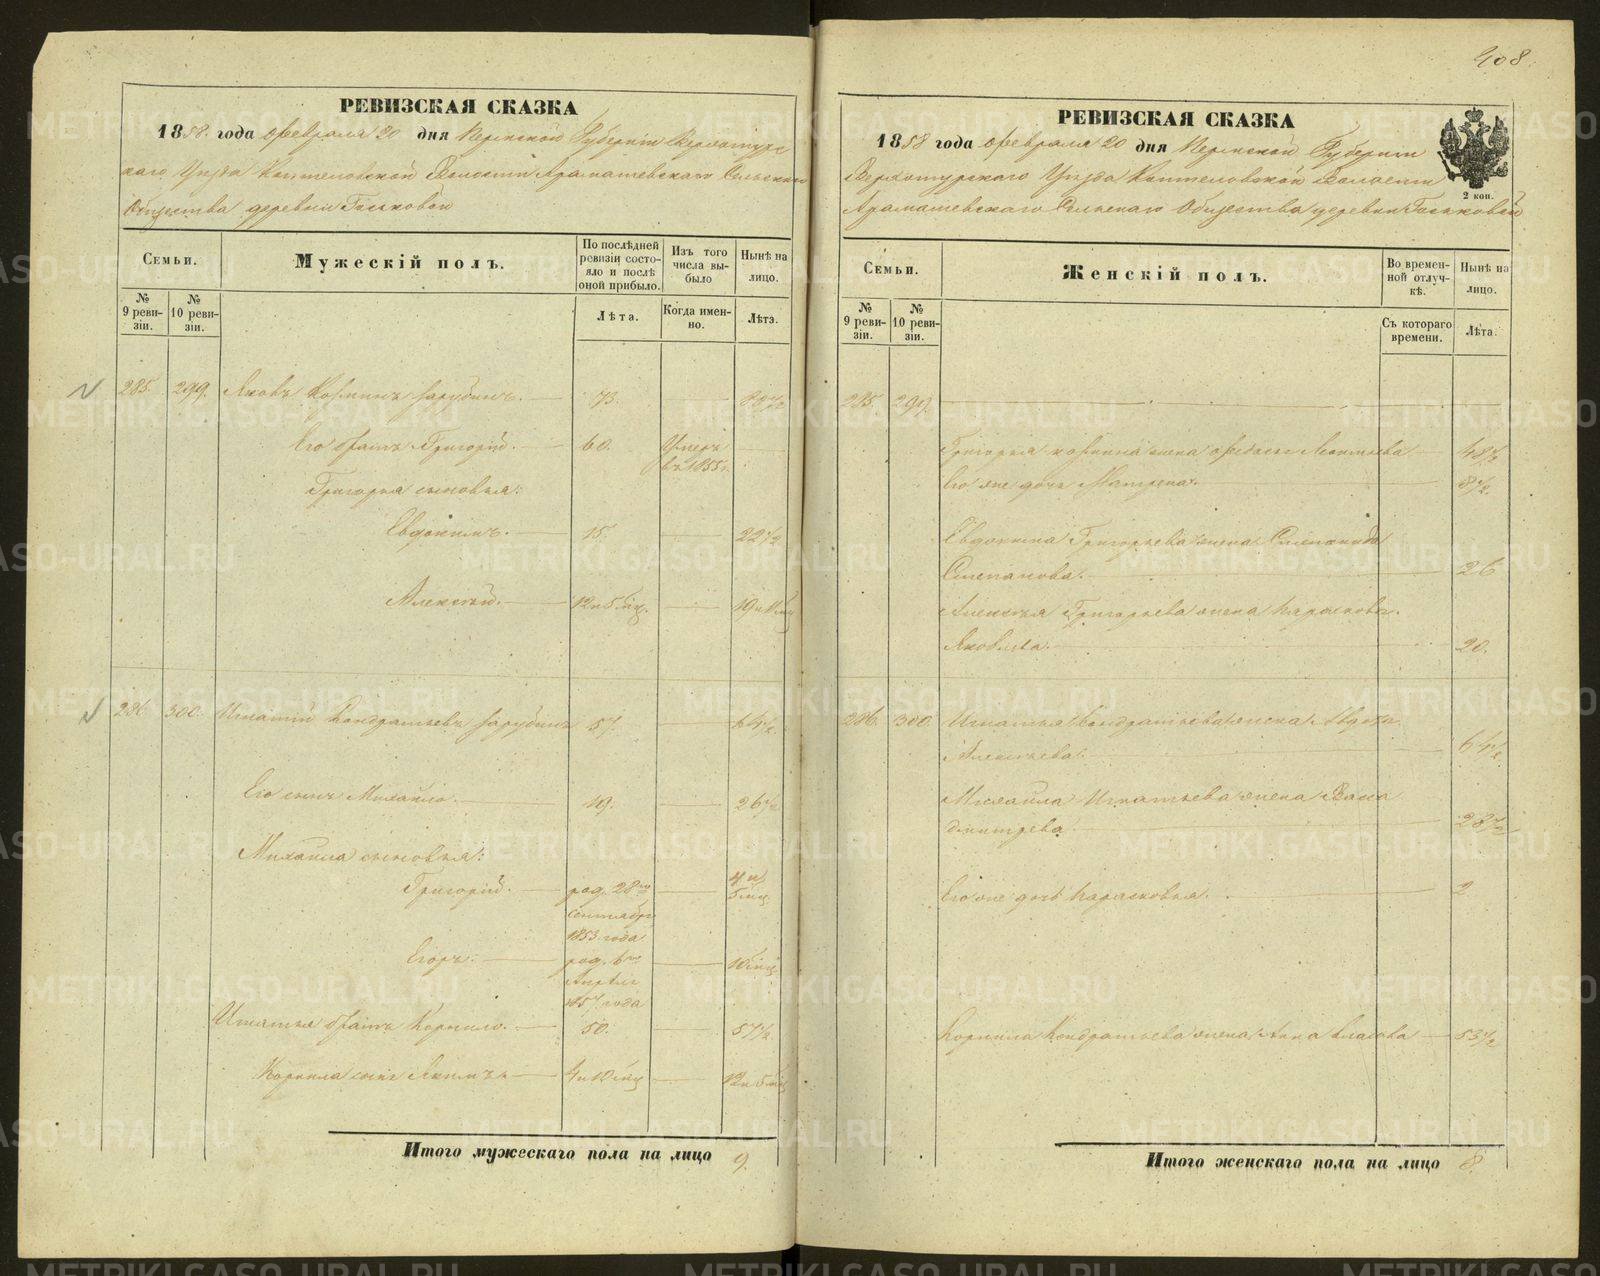 408.
РЕВИЗСКАЯ СКАЗКА
1858. года февраля 20 дня Пермской Губернии Верхотурс
каго Уезда Коптеловской Волости Арамашевскаго Сельскаго
Общества деревни Гоньковой
Семьи.
Мужескій полъ.
По послѣдней ревизіи состояло и послѣ оной прибыло.
Изъ того числа выбыло
Нынѣ на лицо.
№ 9 ревизіи.
№ 10 ревизіи.
Лѣта.
Когда именно.
Лѣта.
285. 299. Яковъ Козминъ Зарубинъ. 73. 80½
Его братъ Григорій. 60. Умеръ въ 1855 г.
Григорья сыновья:
Евдокимъ. 15. 22½
Алексѣй. 12 и 5 мц. 19 и 11 мц
286. 300. Игнатій Кондратьевъ Зарубинъ 57. 64½
Его сынъ Михайло. 19. 26½
Михаила сыновья:
Григорій. род. 28го сентября 1853 года 4 и 5 мц
Егоръ. род. 6го Апреля 1857 года 10 мц
Игнатья братъ Корнило. 50. 57½
Корнила сынъ Якимъ 4 и 10 мц 12 и 5 мц
Итого мужескаго пола на лицо 9.
РЕВИЗСКАЯ СКАЗКА
1858 года февраля 20 дня Пермской Губернии
Верхотурскаго Уезда Коптеловской Волости
Арамашевскаго Сельскаго Общества деревни Гоньковой
2 коп.
Семьи.
Женскій полъ.
Во временной отлучкѣ.
Нынѣ на лицо.
№ 9 ревизіи.
№ 10 ревизіи.
Съ котораго времени.
Лѣта.
285. 299.
Григорья Козмина жена Леонтьева 48½
Его же дочь Матрена. 8½.
Евдокима Григорьева жена Степанида
Степанова. 26
Алексѣя Григорьева жена Парасковья
Яковлева. 20.
286. 300. Игнатья Кондратьева жена Авдотья
Алексѣева. 64½.
Михаила Игнатьева жена Васса
Дмитрева 28½
Его же дочь Парасковья. 2
Корнила Кондратьева жена Анна Власова 53½
Итого женскаго пола на лицо 8.
METRIKI.GASO-URAL.RU